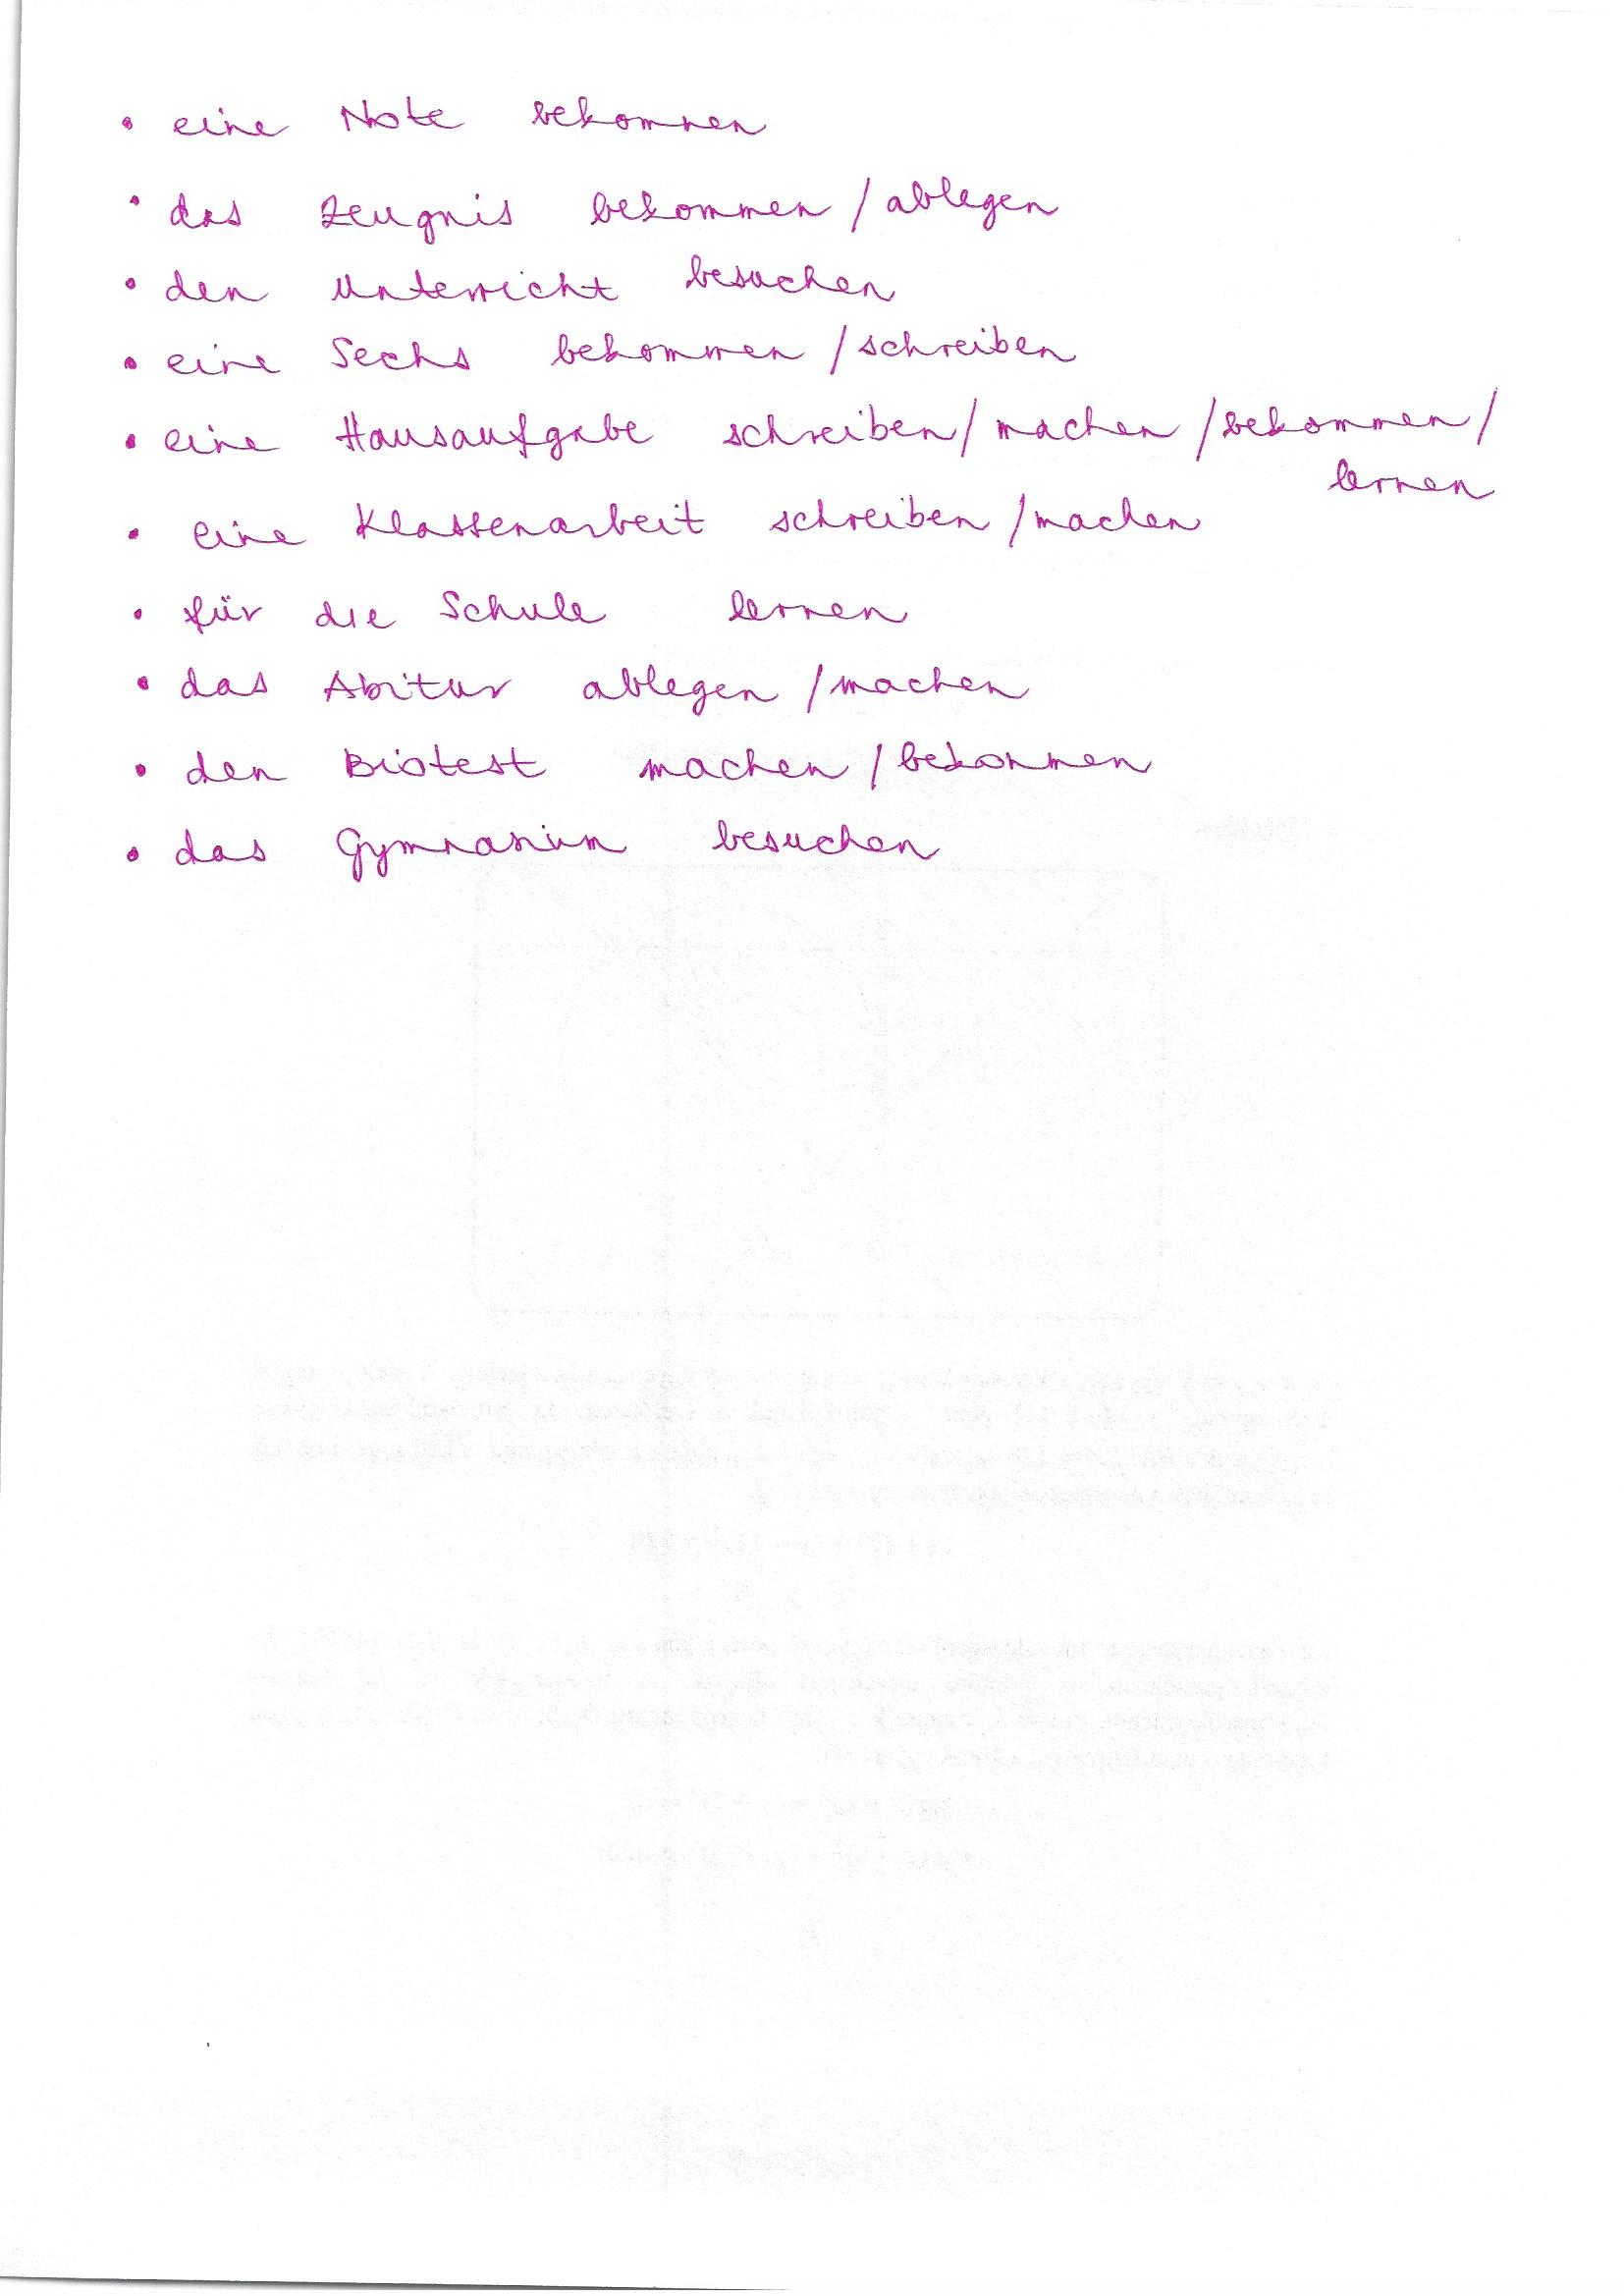 • eine Note bekommen
• das Zeugnis bekommen / ablegen
• den Unterricht besuchen
• eine Sechs bekommen / schreiben
• eine Hausaufgabe schreiben / machen / bekommen /
lernen
• eine Klassenarbeit schreiben / machen
• für die Schule lernen
• das Abitur ablegen / machen
• den Biotest machen / bekommen
• das Gymnasium besuchen